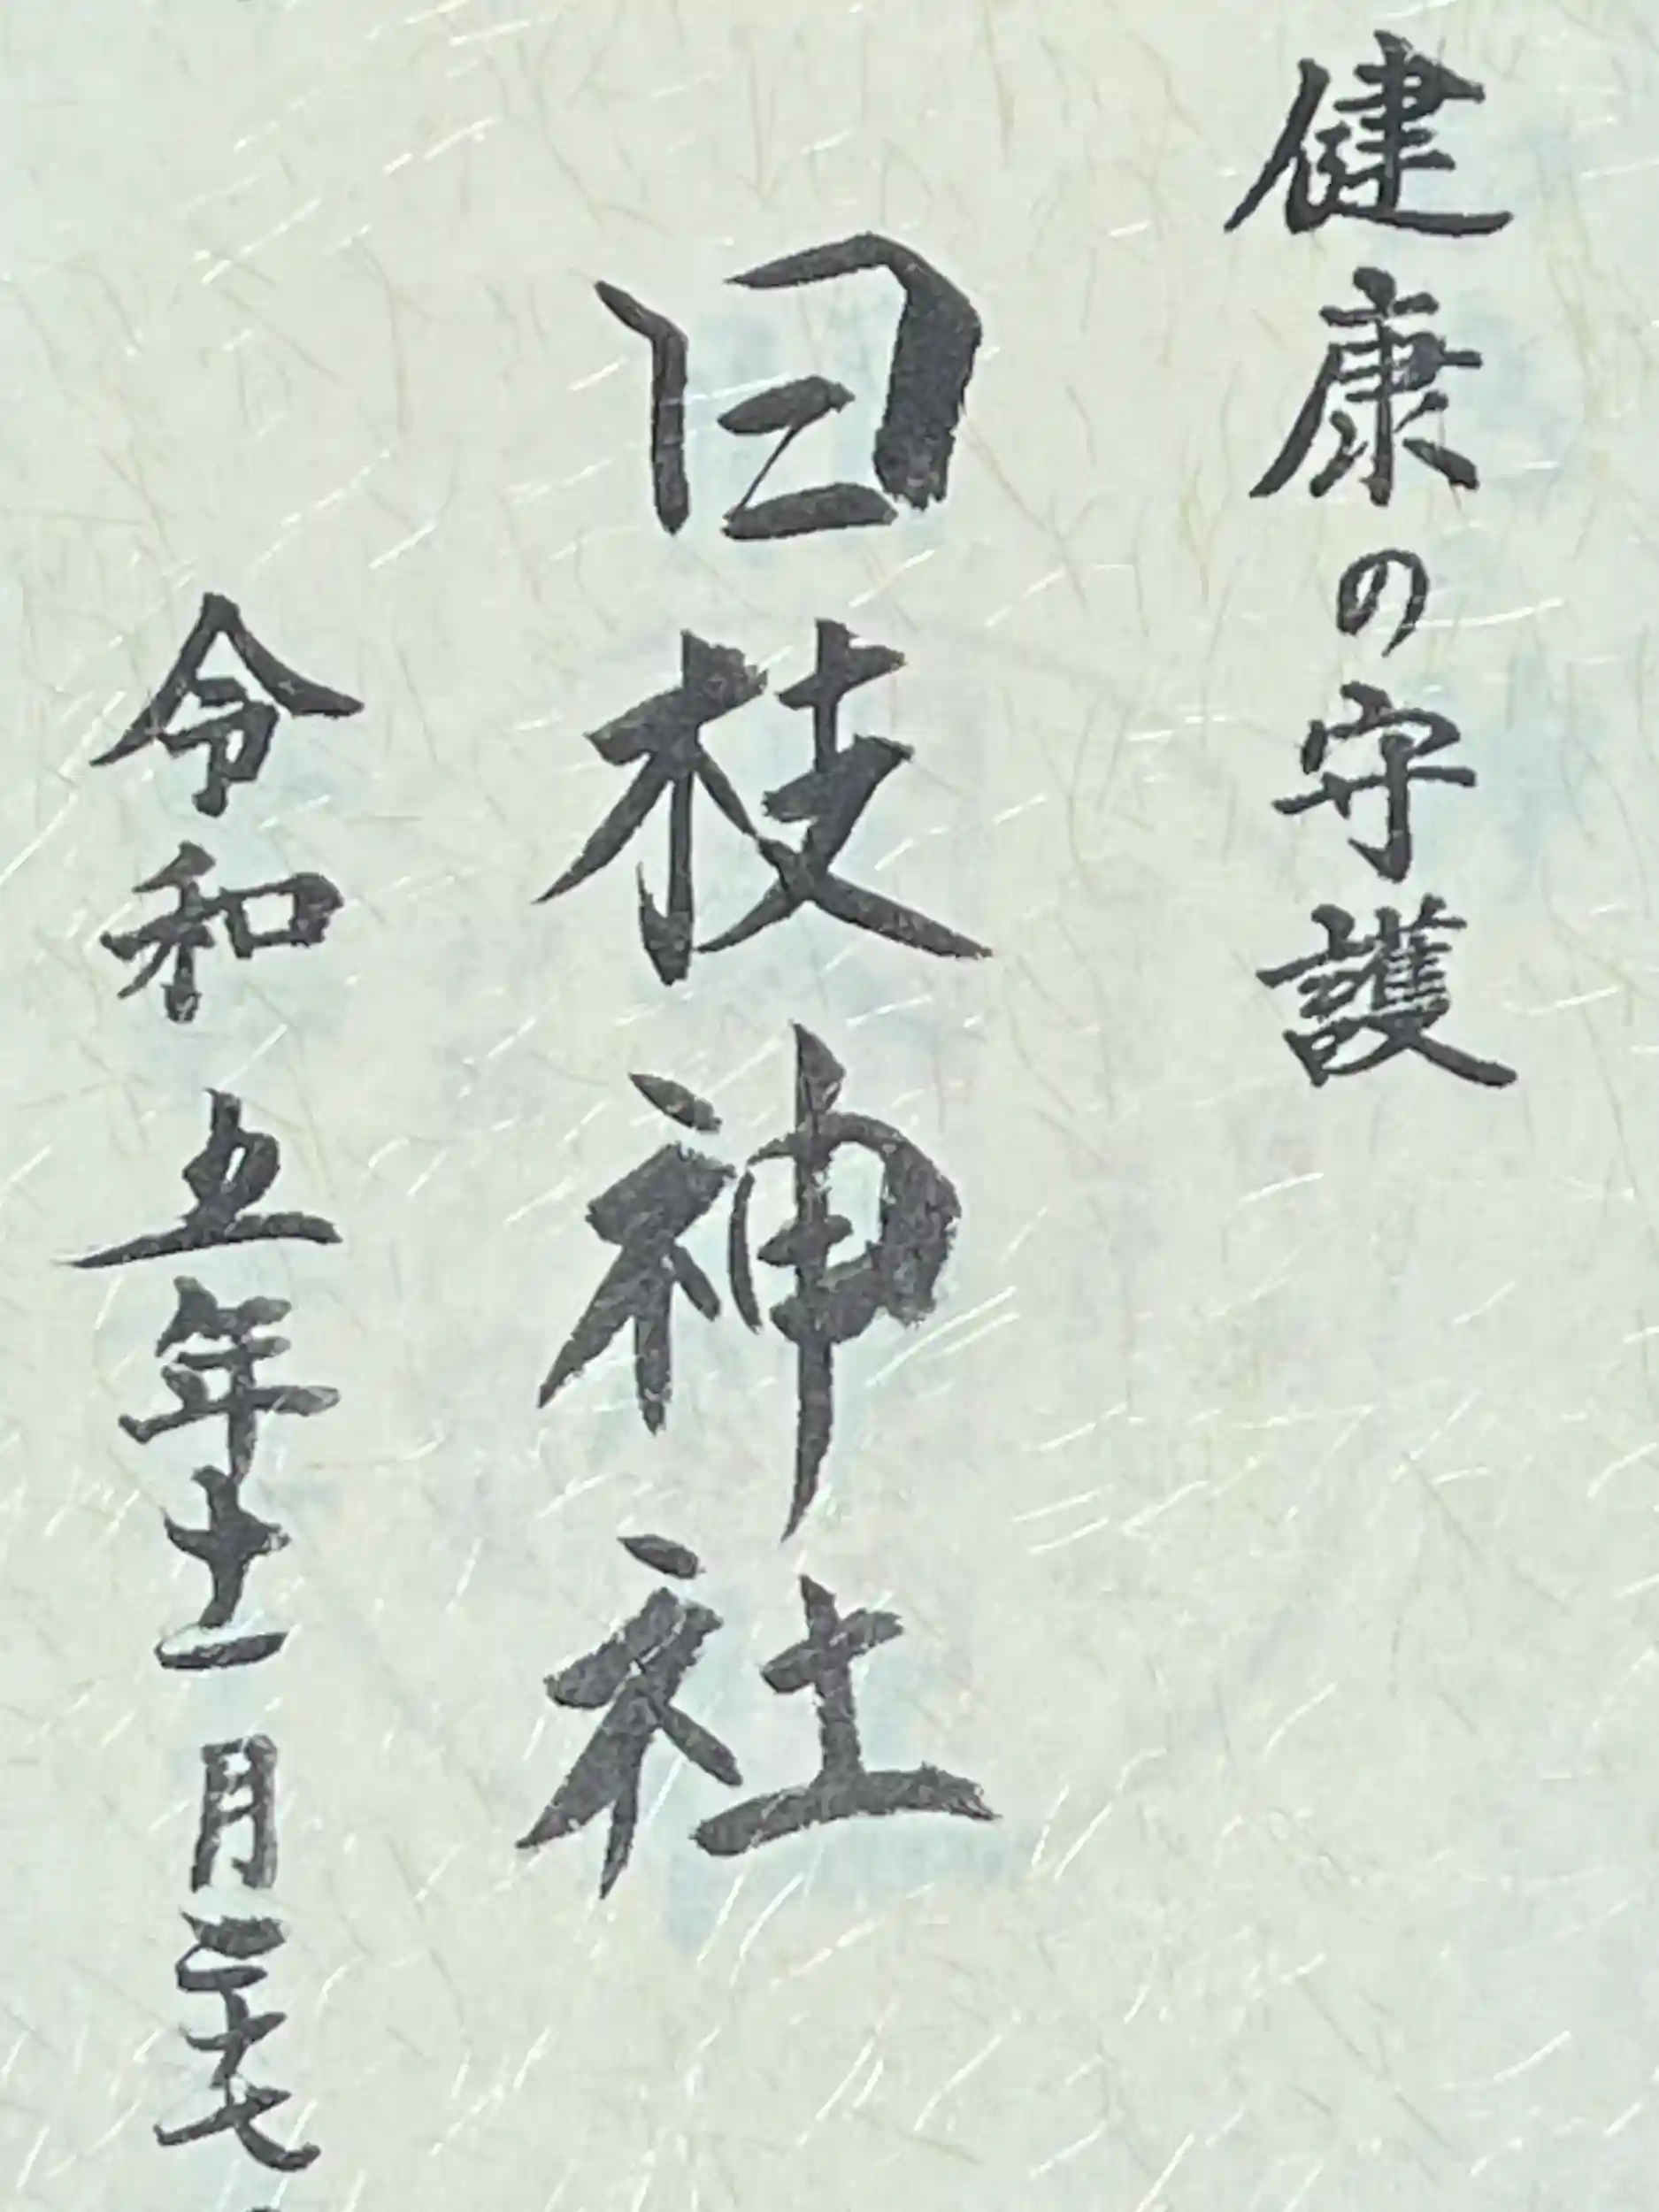 健康の守護
日枝神社
令和五年十二月二十七